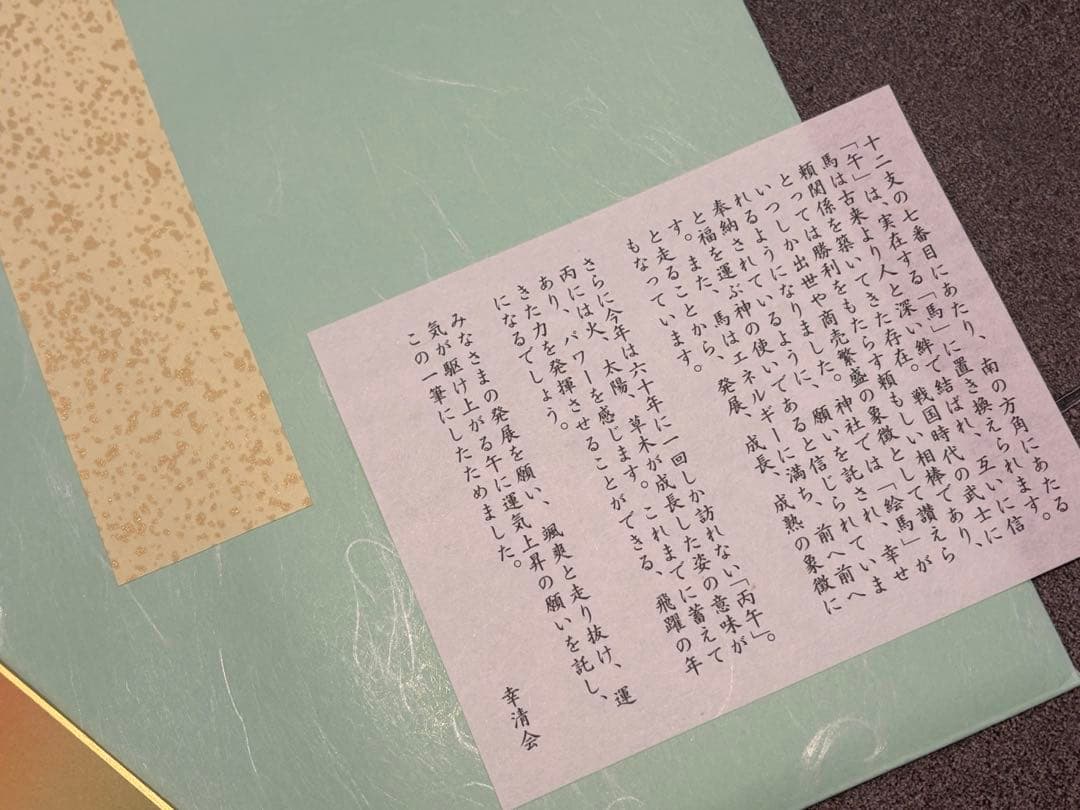 十二支の七番目にあたり、南の方角にあたる
「午」は、実在する「馬」に置き換えられます。
馬は古来より人と深い絆で結ばれ、互いに信
頼関係を築いてきた存在。戦国時代の武士に
とっては勝利をもたらす頼もしい相棒であり、
いつしか出世や商売繁盛の象徴として讃えら
れるようになりました。神社では「絵馬」が
奉納されているように、願いを託され、幸せ
と福を運ぶ神の使いであると信じられていま
す。また、馬はエネルギーに満ち、前へ前へ
と走ることから、発展、成長、成熟の象徴に
もなっています。
さらに今年は六十年に一回しか訪れない「丙午」。
丙には火、太陽、草木が成長した姿の意味が
あり、パワーを感じます。これまでに蓄えて
きた力を発揮させることができる、飛躍の年
になるでしょう。
みなさまの発展を願い、颯爽と走り抜け、運
気が駆け上がる午に運気上昇の願いを託し、
この一筆にしたためました。
幸清会